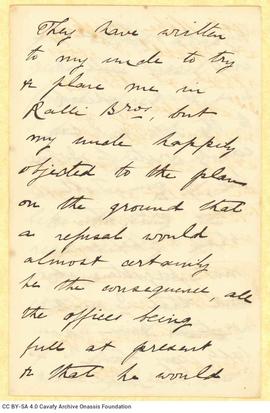 They have written
to my uncle to try
& place me in
Ralli Bros, but
my uncle happily
objected to the plan
on the ground that
a refusal would
almost certainly
be the consequence, all
the offices being
full at present
& that he would
CC BY-SA 4.0 Cavafy Archive Onassis Foundation